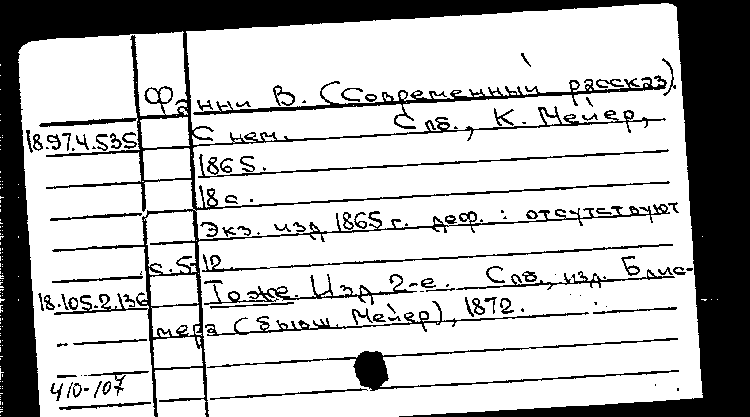 Фанни В. (Современный рассказ).
18.97.4.535 С нем. Спб., К. Мейер,
1865.
18 с.
Экз. изд 1865 г. деф. : отсутствуют
с. 5-12.
18.105.2.136 То же. Изд. 2-е. Спб., изд. Блис-
мера (бывш. Мейер), 1872.
410-107